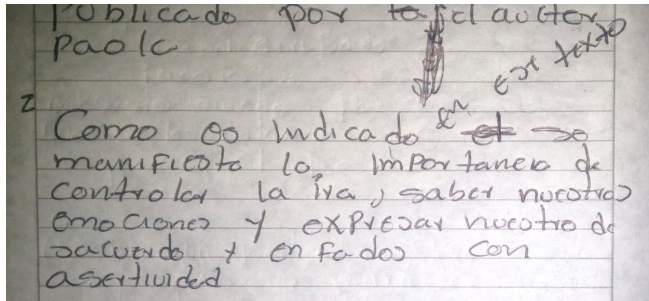 Publicado por el auctor
Paola
en este texto
2
Como es indicado se
manifiesta la importancia de
controlar la ira, saber nuestras
emociones y expresar nuestro de
sacuerdo y enfados con
asertividad